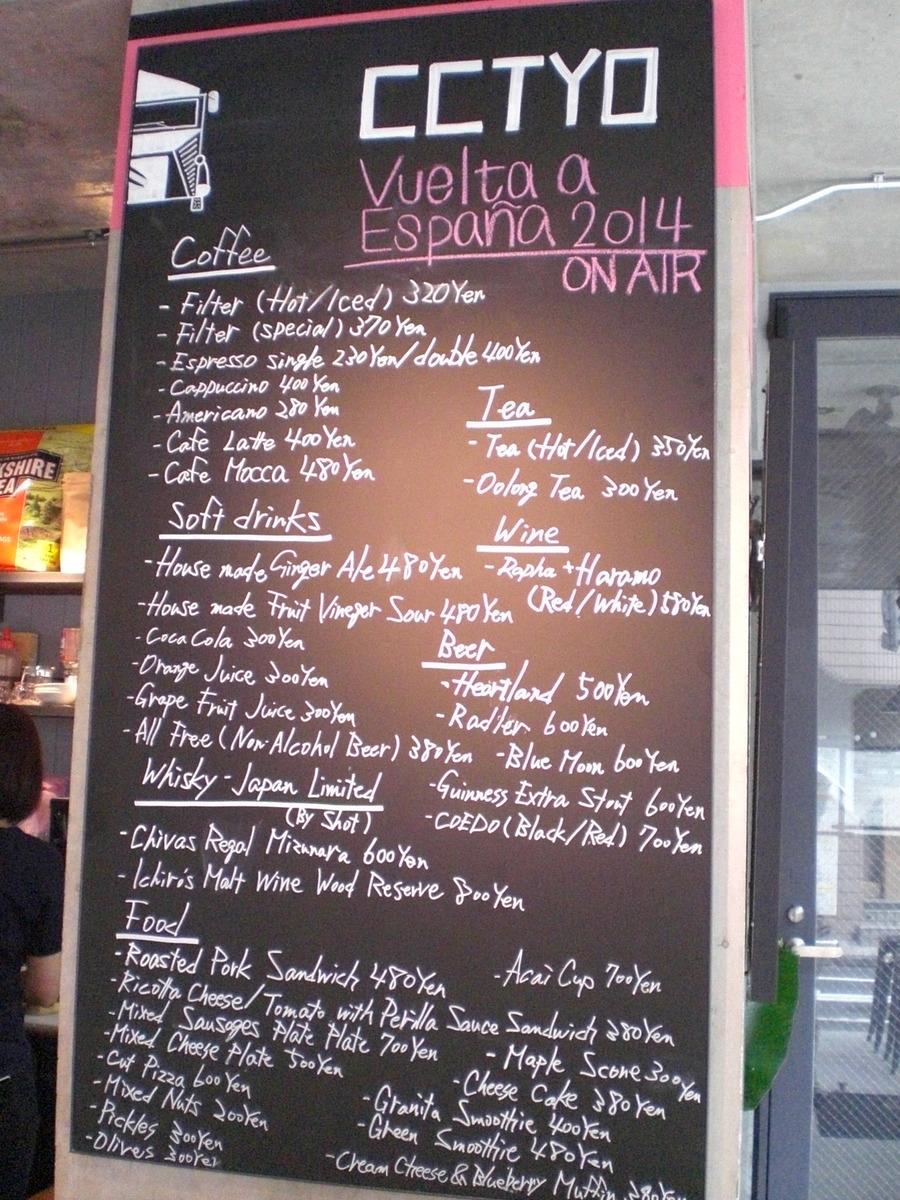 CCTYO
Vuelta a
España 2014
ON AIR
Coffee
- Filter (Hot/Iced) 320Yen
- Filter (special) 370Yen
- Espresso single 230Yen/double 400Yen
- Cappuccino 400Yen
- Americano 280Yen
- Cafe Latte 400Yen
- Cafe Mocca 480Yen
Tea
- Tea (Hot/Iced) 350Yen
- Oolong Tea 300Yen
Soft drinks
- House made Ginger Ale 480Yen
- House made Fruit Vineger Sour 480Yen
- Coca Cola 300Yen
- Orange Juice 300Yen
- Grape Fruit Juice 300Yen
- All Free (Non-Alcohol Beer) 380Yen
Wine
- Rapha + Haramo
(Red/White) 580Yen
Beer
- Heartland 500Yen
- Radler 600Yen
- Blue Moon 600Yen
- Guinness Extra Stout 600Yen
- COEDO (Black/Red) 700Yen
Whisky - Japan Limited
(By Shot)
- Chivas Regal Mizunara 600Yen
- Ichiro's Malt Wine Wood Reserve 800Yen
Food
- Roasted Pork Sandwich 480Yen
- Ricotta Cheese/Tomato with Perilla Sauce Sandwich 380Yen
- Mixed Sausages Plate Plate 700Yen
- Mixed Cheese Plate 500Yen
- Cut Pizza 600Yen
- Mixed Nuts 200Yen
- Pickles 300Yen
- Olives 300Yen
- Acai Cup 700Yen
- Maple Scone 300Yen
- Cheese Cake 380Yen
- Granita Smoothie 400Yen
- Green Smoothie 480Yen
- Cream Cheese & Blueberry Muffin 380Yen
KSHIRE
EA